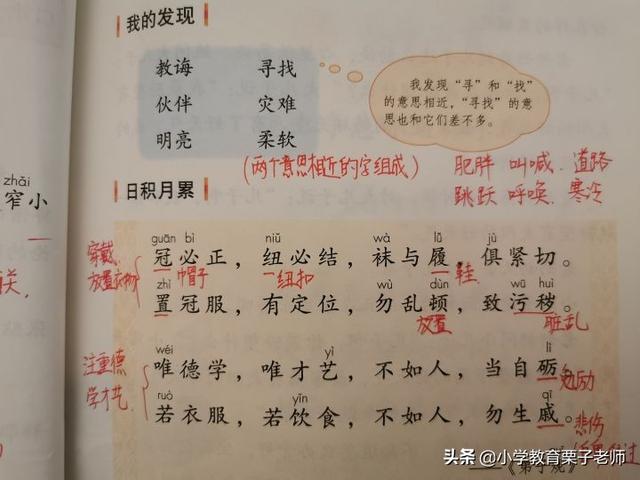 我的发现
教诲 寻找
伙伴 灾难
明亮 柔软
我发现“寻”和“找”
的意思相近，“寻找”的意
思也和它们差不多。
(两个意思相近的字组成)
肥胖 叫喊 道路
跳跃 呼唤 寒冷
zhǎi
窄小
日积月累
guān niǔ wà lǚ jù
冠必正，纽必结，袜与履，俱紧切。
穿戴
放置衣物
帽子 纽扣 鞋
zhì dùn wū huì
置冠服，有定位，勿乱顿，致污秽。
放置 脏乱
注重德
学才艺
wéi yì lì
唯德学，唯才艺，不如人，当自砺。
勉励
ruò yǐn qī
若衣服，若饮食，不如人，勿生戚。
悲伤
——《弟子规》
头条 @小学教育栗子老师